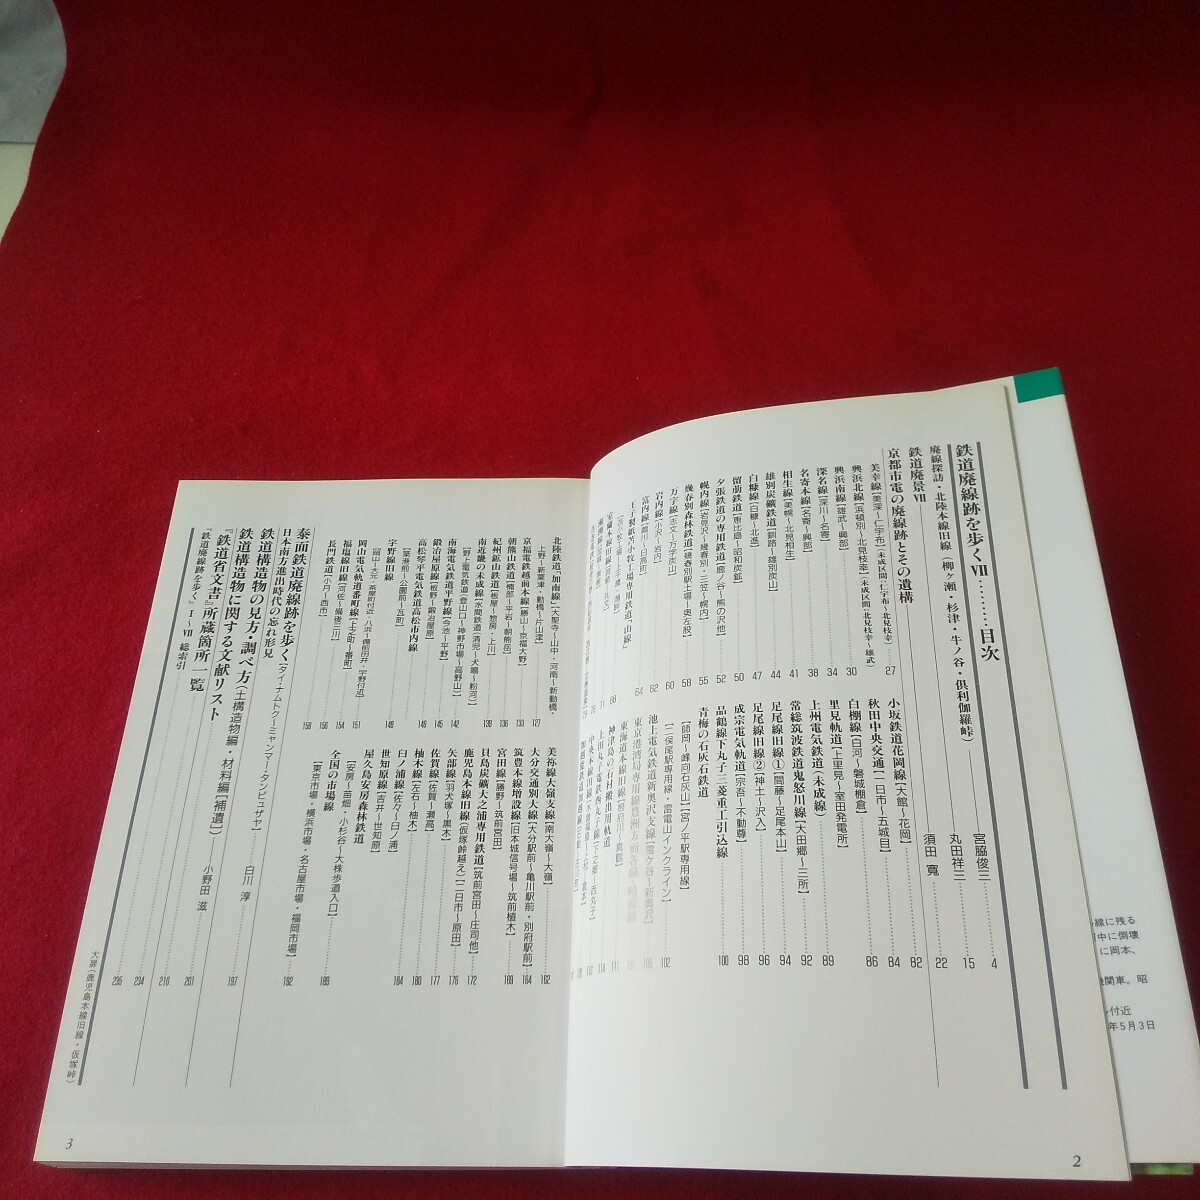 鉄道廃線跡を歩くⅦ………目次
廃線探訪・北陸本線旧線(柳ヶ瀬・杉津・牛ノ谷・倶利伽羅峠) 宮脇俊三 4
鉄道廃景Ⅶ 丸田祥三 15
京都市電の廃線跡とその遺構 須田 寛 22
美幸線[美深〜仁宇布](未成区間・仁宇布〜北見枝幸) 27
興浜北線[浜頓別〜北見枝幸](未成区間・北見枝幸〜雄武) 30
興浜南線[雄武〜興部] 34
深名線[深川〜名寄] 38
名寄本線[名寄〜興部] 41
相生線[美幌〜北見相生] 44
雄別炭礦鉄道[釧路〜雄別炭山] 47
白糠線[白糠〜北進] 50
留萠鉄道[恵比島〜昭和炭鉱] 52
夕張鉄道の専用鉄道[鹿ノ谷〜熊の沢他] 55
幌内線[岩見沢〜幾春別・三笠〜幌内] 58
幾春別森林鉄道[幾春別駅土場〜奥左股] 60
万字線[志文〜万字炭山] 62
岩内線[小沢〜岩内] 64
富内線[鵡川〜日高町]
王子製紙苫小牧工場専用鉄道「山線」
小坂鉄道花岡線[大館〜花岡] 82
秋田中央交通[一日市〜五城目] 84
白棚線[白河〜磐城棚倉] 86
里見軌道[上里見〜室田発電所] 89
上州電気鉄道(未成線) 92
常総筑波鉄道鬼怒川線[大田郷〜三所] 94
足尾線旧線①[間藤〜足尾本山] 96
足尾線旧線②[神土〜沢入] 98
成宗電気軌道[宗吾〜不動尊] 100
品鶴線下丸子三菱重工引込線
青梅の石灰石鉄道
[師岡〜峰向石灰山][宮ノ平駅専用線]
[二俣尾駅専用線・雷電山インクライン] 102
池上電気鉄道新奥沢支線[雪ケ谷〜新奥沢]
東京港湾局専用線豊洲方面各線・晴海線
東海道本線旧線[根府川〜真鶴]
神津島の石材搬出用軌道
上田丸子電鉄西丸子線[下之郷〜西丸子]
2
北陸鉄道「加南線」[大聖寺〜山中・河南〜新動橋・
上野〜新粟津・動橋〜片山津] 127
京福電鉄越前本線[勝山〜京福大野] 133
朝熊山鉄道[楠部〜平岩〜朝熊岳] 136
紀州鉱山鉄道[板屋〜惣房・上川] 139
南近畿の未成線[水間鉄道][清児〜犬鳴〜粉河]
[野上電気鉄道][登山口〜神野市場〜高野山] 142
南海電気鉄道平野線[今池〜平野] 145
鍛冶屋原線[板野〜鍛冶屋原] 146
高松琴平電気鉄道高松市内線
[築港前〜公園前〜瓦町] 148
宇野線旧線
[岡山〜大元・茶屋町付近・八浜〜備前田井・宇野付近]
岡山電気軌道番町線[上之町〜番町] 151
福塩線旧線[河佐〜備後三川] 154
長門鉄道[小月〜西市] 156
美祢線大嶺支線[南大嶺〜大嶺] 162
大分交通別大線[大分駅前〜亀川駅前・別府駅前] 164
筑豊本線増設線[旧本城信号場〜筑前植木]
宮田線[勝野〜筑前宮田] 169
貝島炭礦大之浦専用鉄道[筑前宮田〜庄司他]
鹿児島本線旧線(仮塚峠越え)[二日市〜原田] 172
矢部線[羽犬塚〜黒木] 176
佐賀線[佐賀〜瀬高] 177
柚木線[左石〜柚木] 180
臼ノ浦線[佐々〜臼ノ浦] 184
世知原線[吉井〜世知原]
屋久島安房森林鉄道
[安房〜苗畑・小杉谷〜大株歩道入口] 189
全国の市場線
[東京市場・横浜市場・名古屋市場・福岡市場] 192
泰面鉄道廃線跡を歩く[タイ・ナムトク〜ミャンマー・タンビュザヤ]
日本南方進出時代の忘れ形見 白川 淳 197
鉄道構造物の見方・調べ方(土構造物編・材料編[補遺]) 小野田 滋 201
鉄道構造物に関する文献リスト 210
『鉄道省文書』所蔵箇所一覧 234
『鉄道廃線跡を歩く』Ⅰ〜Ⅶ 総索引 235
大扉(鹿児島本線旧線・仮塚峠)
3
線に残る
中に倒壊
に岡本、
関車。昭
付近
年5月3日